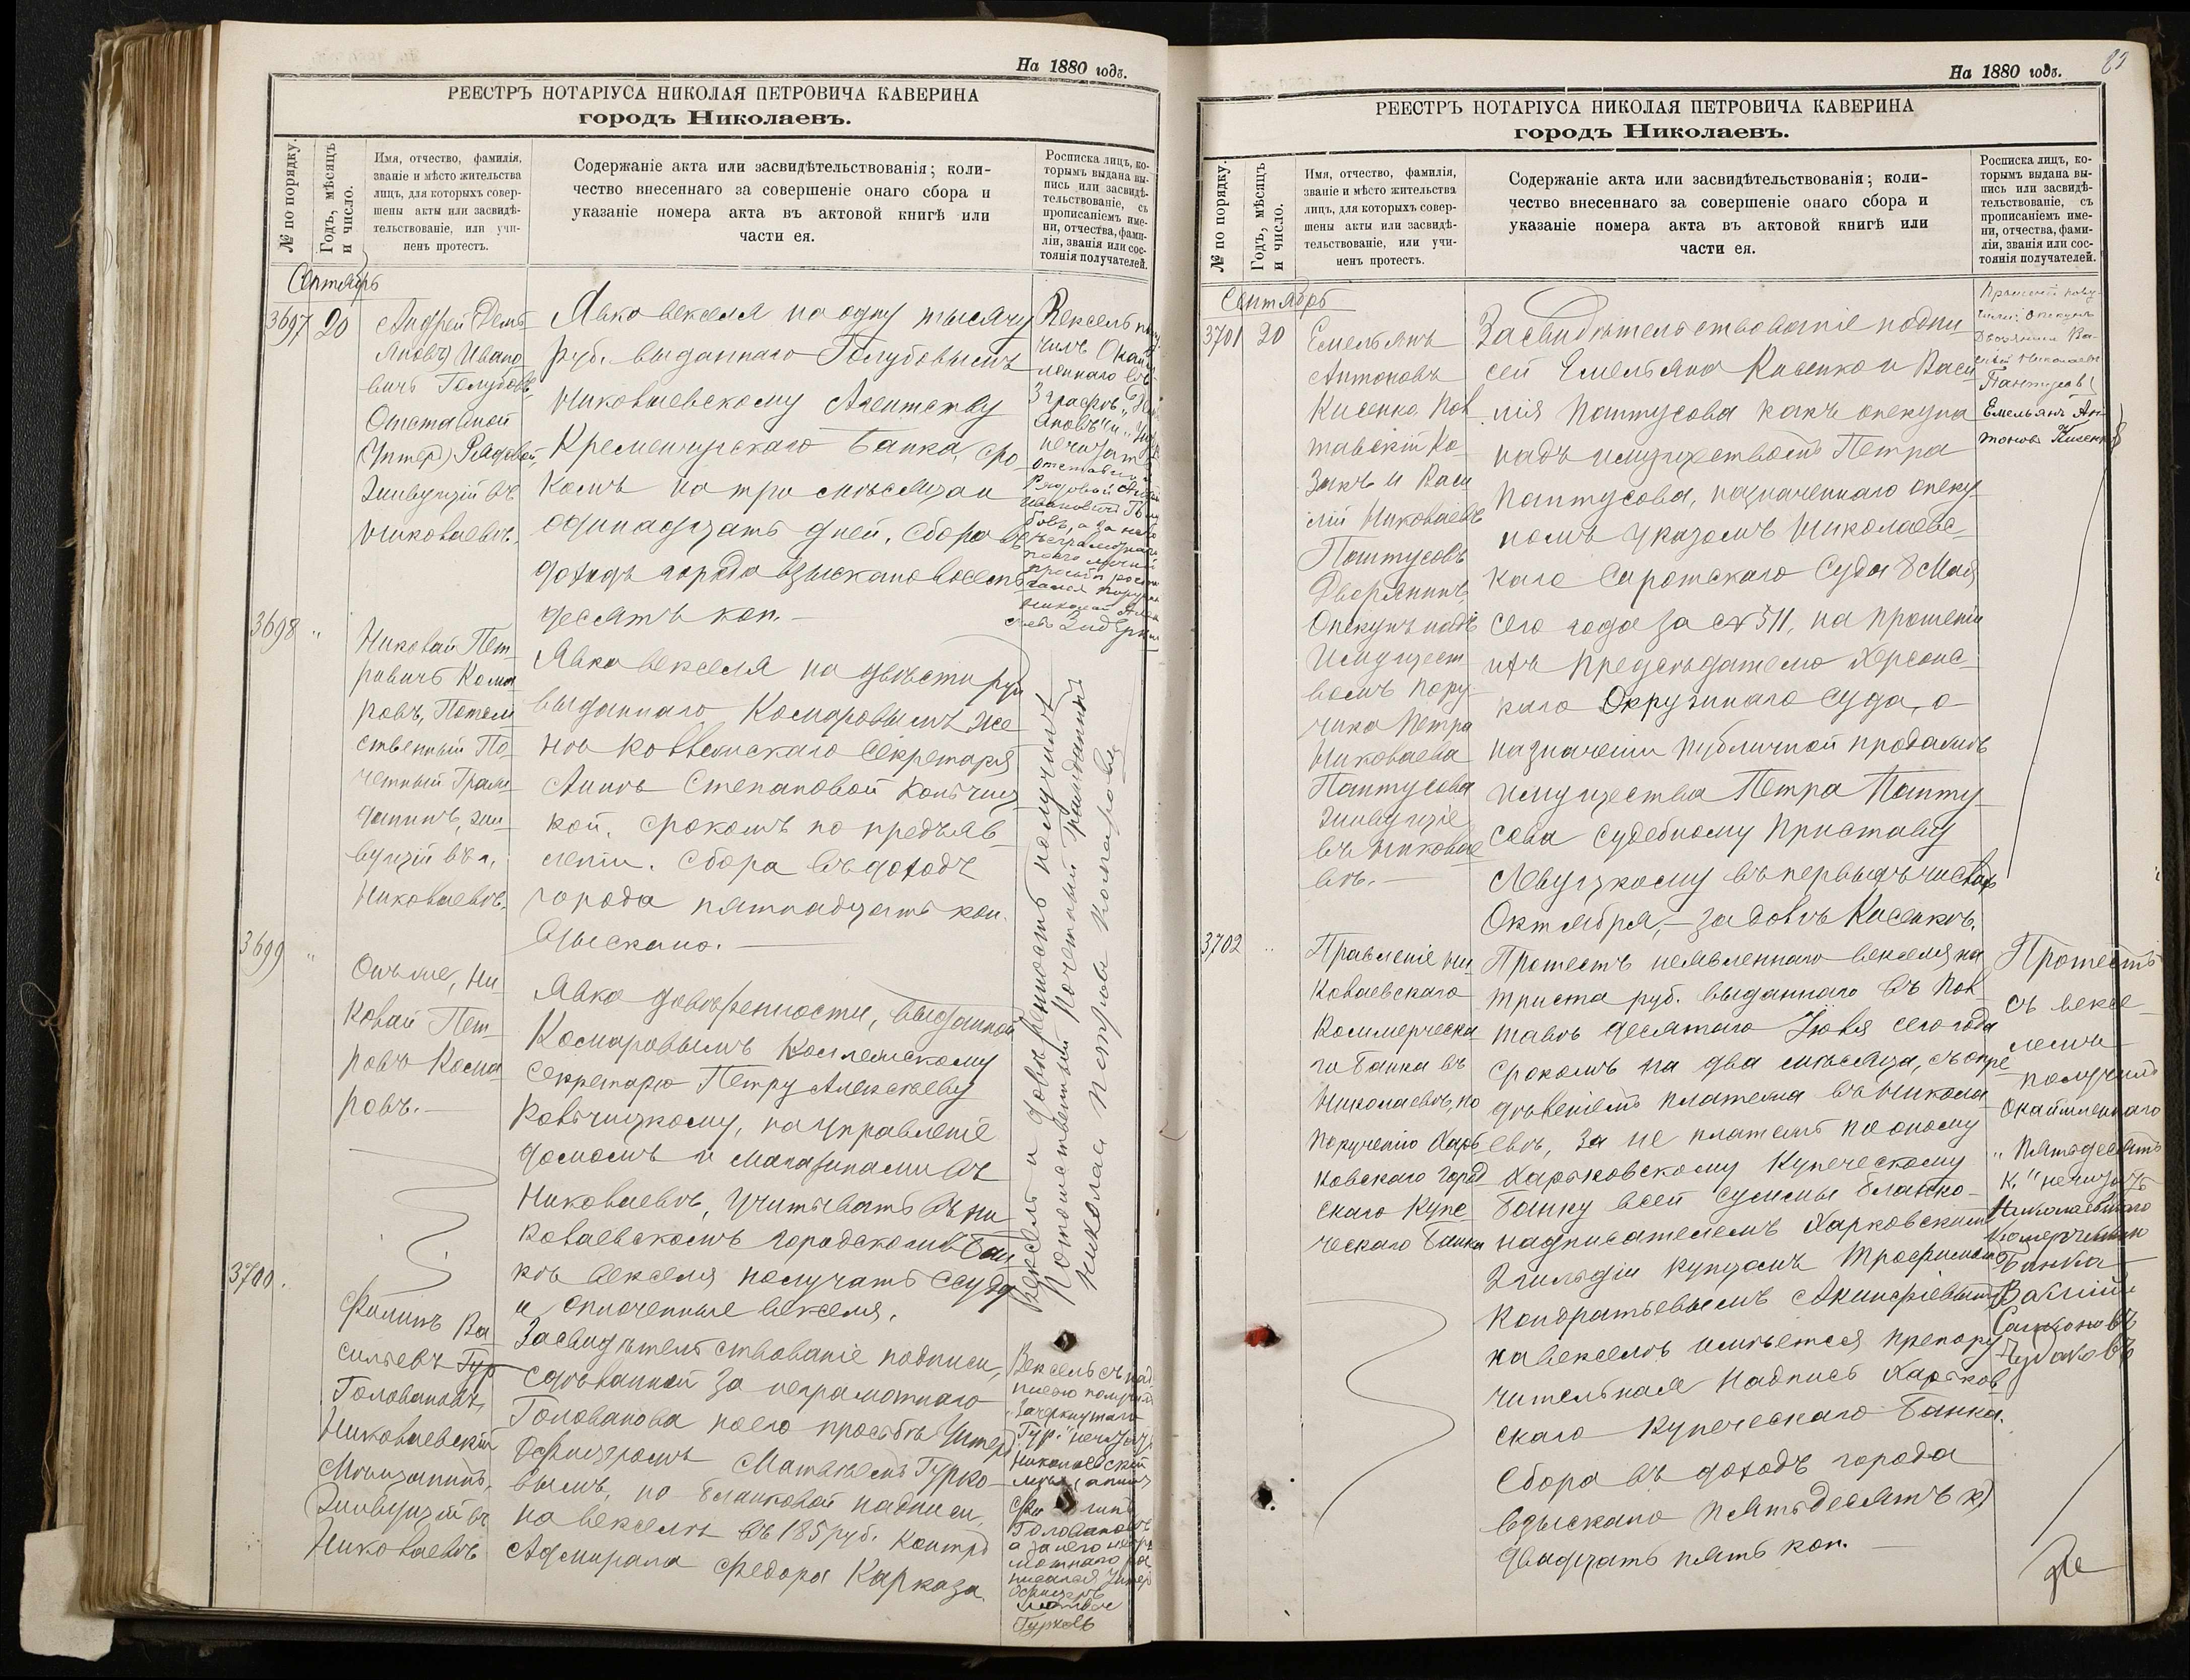 На 1880 годъ.
РЕЕСТРЪ НОТАРІУСА НИКОЛАЯ ПЕТРОВИЧА КАВЕРИНА
городъ Николаевъ.
№ по порядку.
Годъ, мѣсяцъ
и число.
Имя, отчество, фамилія,
званіе и мѣсто жительства
лицъ, для которыхъ совер-
шены акты или засвидѣ-
тельствованіе, или учи-
ненъ протестъ.
Содержаніе акта или засвидѣтельствованія; коли-
чество внесеннаго за совершеніе онаго сбора и
указаніе номера акта въ актовой книгѣ или
части ея.
Росписка лицъ, ко-
торымъ выдана вы-
пись или засвидѣ-
тельствованіе, съ
прописаніемъ име-
ни, отчества, фами-
ліи, званія или сос-
тоянія получателей.
Сентябрь
3697 20
Андрей
Ивано
вичъ Голубовъ,
Отставной
Рядовой,
Живущій въ
Николаевѣ.
Явка векселя на одну тысячу
руб. выданнаго Голубовымъ
Николаевскому Агентству
Кременчугскаго Банка, сро
комъ на три мѣсяца и
одинадцать дней. Сбора въ
доходъ города взыскано восемь
десятъ коп.
Вексель
чилъ
3698 "
Николай Пет
ровичъ Кома
ровъ, Потом
ственный По
четный Граж
данинъ, жи
вущій въ г.
Николаевѣ.
Явка векселя на двѣсти руб
выданнаго Комаровымъ же
нѣ Коллежскаго Секретаря
Аннѣ Степановой
кой, срокомъ по предъяв
леніи. Сбора въ доходъ
города пятнадцать коп.
взыскано.
3699 "
Онъ же, Ни
колай Пет
ровъ Кома
ровъ.
Явка довѣренности, выданной
Комаровымъ Коллежскому
Секретарю Петру Алексѣеву
на управленіе
домомъ и магазинами въ
Николаевѣ, учитывать въ Ни
колаевскомъ городскомъ Бан
кѣ векселя получать ссуду
и оплоченные векселя.
Вексель и довѣренность получилъ
Потомственный Почетный Гражданинъ
Николай Петровъ Комаровъ
3700.
Филипъ Ва
сильевъ Гур
Головановъ,
Николаевскій
Мѣщанинъ,
Живущій въ
Николаевѣ
Засвидѣтельствованіе подписи,
сдѣланной за неграмотнаго
Голованова по его просьбѣ Унтеръ
Офицеромъ Матвѣемъ Гурко
вымъ, по бланковой надписи,
на векселѣ въ 185 руб. Контръ
Адмирала Федора Карказа.
Вексель съ над
писью получилъ
Зачеркнутаго
"Гур." не читать
Николаевскій
мѣщанинъ
Филипъ
Головановъ
а за него негра
мотнаго рос
писался Унтеръ
Офицеръ
Матвѣй
Гурковъ
На 1880 годъ.
РЕЕСТРЪ НОТАРІУСА НИКОЛАЯ ПЕТРОВИЧА КАВЕРИНА
городъ Николаевъ.
№ по порядку.
Годъ, мѣсяцъ
и число.
Имя, отчество, фамилія,
званіе и мѣсто жительства
лицъ, для которыхъ совер-
шены акты или засвидѣ-
тельствованіе, или учи-
ненъ протестъ.
Содержаніе акта или засвидѣтельствованія; коли-
чество внесеннаго за совершеніе онаго сбора и
указаніе номера акта въ актовой книгѣ или
части ея.
Росписка лицъ, ко-
торымъ выдана вы-
пись или засвидѣ-
тельствованіе, съ
прописаніемъ име-
ни, отчества, фами-
ліи, званія или сос-
тоянія получателей.
Сентябрь
3701 20
Емельянъ
Антоновъ
Кисенко Пол
тавскій Ко
закъ и Васи
лій Николаевъ
Пантусовъ
Дворянинъ
Опекунъ надъ
Имущест
вомъ пору
чика Петра
Николаева
Пантусова
Живущіе
въ Николае
вѣ.
Засвидѣтельствованіе подпи
сей Емельяна Кисенко и Васи
лія Пантусова какъ опекуна
надъ имуществомъ Петра
Пантусова, назначеннаго опеку
номъ указомъ Николаевс
каго Сиротскаго Суда 8 Мая
сего года за № 511, на прошеніи
ихъ Предсѣдателю Херсонс
каго Окружнаго Суда, о
назначеніи публичной продажѣ
имущества Петра Панту
сова Судебному Приставу
въ первыхъ числахъ
Октября, за долгъ Кисенкѣ.
Прошеніе полу
чили: Опекунъ
Дворянинъ Ва
силій Николаевъ
Пантусовъ
Емельянъ Ан
тоновъ Кисенко
3702 "
Правленіе Ни
колаевскаго
Коммерческа
го Банка въ
Николаевѣ, по
порученію Харь
ковскаго Город
скаго Купе
ческаго Банка
Протестъ неявленнаго векселя на
триста руб. выданнаго въ Пол
тавѣ десятаго Іюля сего года
срокомъ на два мѣсяца, съ опре
дѣленіемъ платежа въ Никола
евѣ, за не платежъ по оному
Харьковскому Купеческому
Банку всей суммы бланко
надписателемъ Харковскимъ
2 гильдіи купцомъ Трофимомъ
Кондратьевымъ
на векселѣ имѣется препору
чительная надпись Харьков
скаго Купеческаго Банка.
Сбора въ доходъ города
взыскано пятьдесятъ к)
двадцать пять коп.
Протестъ
съ вексе
лемъ
получилъ
Окаймленнаго
"Пятьдесятъ
к." не читать
Николаевскаго
Комерческаго
Банка